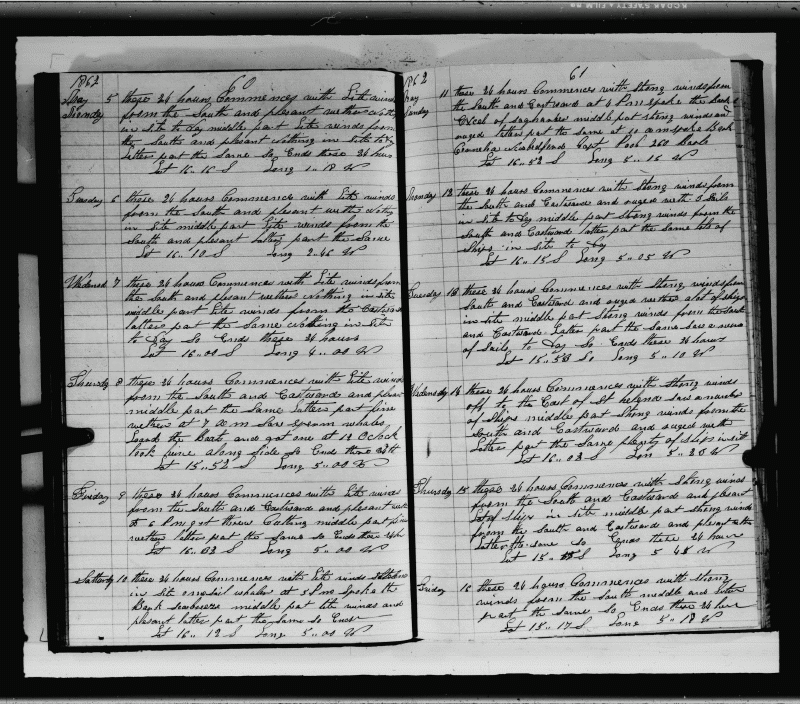 KODAK SAFETY FILM
1862
60
May 5 these 24 hours Commences with Lite winds
Monday from the South and plesant wether
in site to Day middle part Lite winds from
the South and plesant nothing in Site to Day
latter part the Same So Ends these 24 hours
Lat 16 .. 16 S Long 1 .. 18 W
Tuesday 6 these 24 hours Commences with Lite winds
from the South and plesant wether nothing
in Site middle part Lite winds from the
South and plesant latter part the Same
Lat 16 .. 10 S Long 2 .. 46 W
Wednesd 7 these 24 hours Commences with Lite winds from
the South and plesant wether Nothing in site
middle part Lite winds from the Eastward
latter part the Same Nothing in Site
to Day So Ends these 24 hours
Lat 16 .. 00 S Long 4 .. 00 W
Thursdy 8 these 24 hours Commences with Lite winds
from the South and Eastward and plesant
middle part the Same latter part fine
wether at 7 a m Saw Sperm whales
Loard the Boats and got one at 12 Oclock
took him along Side So Ends these 24th
Lat 15 .. 52 S Long 5 .. 00 W
Friday 9 these 24 hours Commences with Lite winds
from the South and Eastward and plesant
at 6 P m got threw Cutting middle part fine
wether latter part the Same So Ends these 24h
Lat 16 .. 03 S Long 5 .. 00 W
Saturdy 10 these 24 hours Commences with Lite winds
in site one Sail whaler at 5 P m Spoke the
Bark middle part lite winds and
plesant latter part the Same So Ends
Lat 16 .. 12 S Long 5 .. 00 W
1862
61
May 11 these 24 hours Commences with Strong winds from
Sunday the South and Eastward at 4 P m Spoke the Bark
Excel of Sagharbor middle part strong winds and
ruged latter part the Same at 10 a m spoke Bark
Cornelia of Newbedford Capt 260 Barls
Lat 16 .. 52 S Long 5 .. 15 W
Monday 12 these 24 hours Commences with Strong winds from
the South and Eastward and ruged weth 5 Sails
in Site to Day middle part Strong winds from the
South and Eastward latter part the Same lots of
Ships in Site to Day
Lat 16 .. 15 S Long 5 .. 05 W
Tuesday 13 these 24 hours Commences with Strong winds from
South and Eastward and ruged wether a lot of ships
in Site middle part Strong winds from the South
and Eastward Latter part the Same Saw a number
of Sails to Day So Ends these 24 hours
Lat 15 .. 58 So Long 5 .. 10 W
Wednesdy 14 these 24 hours Commences with Strong winds
off to the East of St Helena Saw a number
of Ships middle part Strong winds from the
South and Eastward and ruged weth
Latter part the Same plenty of Ships in Sit
Lat 16 .. 03 S Lon 5 .. 20 W
Thursdy 15 these 24 hours Commences with Strong winds
from the South and Eastward and plesant
Lot of Ships in Site middle part Strong winds
from the South and Eastward and plesant wether
Latter the same So Ends these 24 hours
Lat 15 .. S Long 5 48 W
Friday 16 these 24 hours Commences with Strong
winds from the South middle and latter
part the Same So Ends these 24 hours
Lat 15 .. 17 S Long 5 .. 18 W